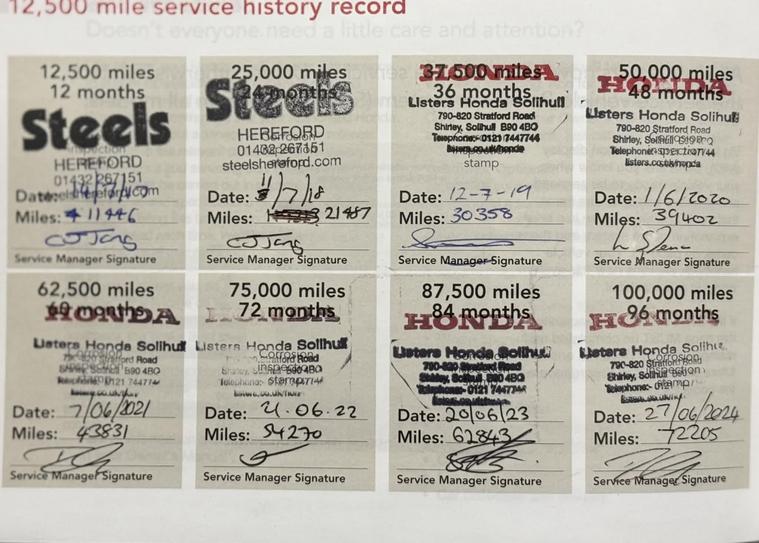 12,500 mile service history record
Doesn't everyone need a little care and attention?
12,500 miles
12 months
Steels
HEREFORD
01432 267151
Date:
Miles: 11446
Service Manager Signature
25,000 miles
24 months
Steels
HEREFORD
01432 267151
steelshereford.com
Date: 11/7/18
Miles: 21487
Service Manager Signature
37,500 miles
HONDA
36 months
Listers Honda Solihull
790-820 Stratford Road
Shirley, Solihull B90 4BQ
Telephone: 0121 7447744
listers.co.uk/honda
stamp
Date: 12-7-19
Miles: 30358
Service Manager Signature
50,000 miles
HONDA
48 months
Listers Honda Solihull
790-820 Stratford Road
Shirley, Solihull
Telephone:
listers.co.uk/honda
Date: 1/6/2020
Miles: 39402
Service Manager Signature
62,500 miles
60 months
HONDA
Listers Honda Solihull
Stratford Road
Corrosion
inspection
stamp
Date: 7/06/2021
Miles: 43831
Service Manager Signature
75,000 miles
72 months
HONDA
Listers Honda Solihull
Corrosion
inspection
stamp
Date: 21.06.22
Miles: 54270
Service Manager Signature
87,500 miles
84 months
HONDA
Listers Honda Solihull
790-820 Stratford Road
Shirley, Solihull B90 4BQ
Telephone: 0121 7447744
Date: 20/06/23
Miles: 62843
Service Manager Signature
100,000 miles
96 months
HONDA
Listers Honda Solihull
Corrosion
790-820 Stratford Road
Shirley, Solihull B90 4BQ
inspection
stamp
Date: 27/06/2024
Miles: 72205
Service Manager Signature